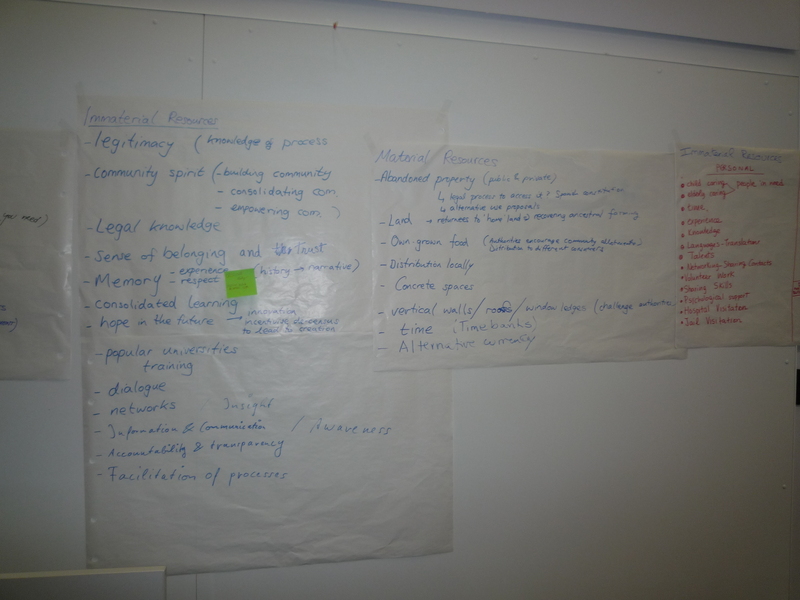 Immaterial Resources
- legitimacy (knowledge of process
- Community spirit (- building community
- consolidating com.
- empowering com.)
- Legal knowledge
- Sense of belonging and trust
- Memory - experience (history → narrative)
- respect
- Consolidated learning
- hope in the future → innovation
to lead to creation
- popular universities
training
- dialogue
- networks Insight
- Information & Communication / awareness
- Accountability & transparency
- Facilitation of processes
Material Resources
- Abandoned property (public & private)
↳ legal process to access it?
↳ alternative use proposals
- Land → returnees to home lands recovering ancestral farming
- Own grown food (Authorities encourage community allotments)
Distribution to different consumers
- Distribution locally
- Concrete spaces
- vertical walls/roofs/window ledges (challenge authorities
- time (Timebanks)
- Alternative currency
Immaterial Resources
PERSONAL
child caring people in need
elderly caring
time
experience
Knowledge
Languages-Translation
Talents
Networking-Sharing Contacts
Volunteer Work
Sharing Skills
Psychological support
Hospital Visitation
Jail Visitation